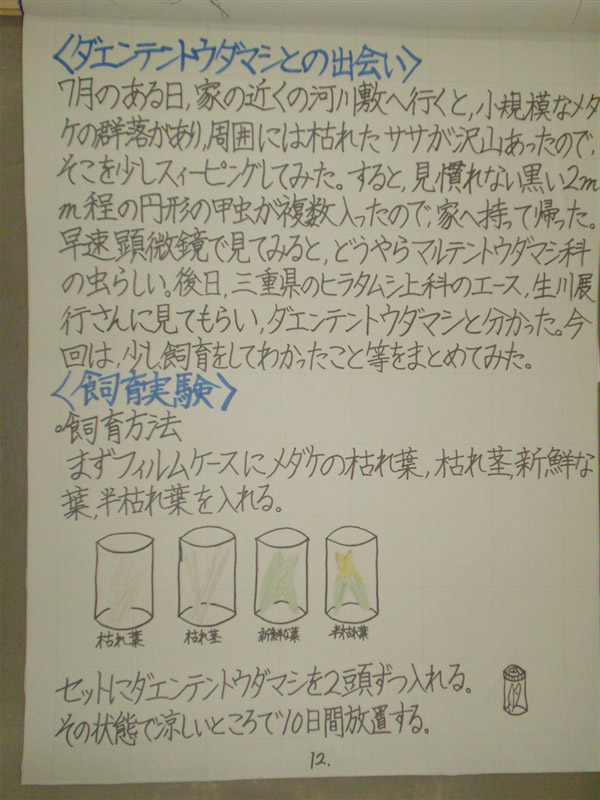 〈ダエンテントウダマシとの出会い〉
7月のある日,家の近くの河川敷へ行くと,小規模なメダ
ケの群落があり,周囲には枯れたササが沢山あったので,
そこを少しスィーピングしてみた。すると,見慣れない黒い2m
m程の円形の甲虫が複数入ったので,家へ持って帰った。
早速顕微鏡で見てみると,どうやらマルテントウダマシ科
の虫らしい。後日,三重県のヒラタムシ上科のエース,生川展
行さんに見てもらい,ダエンテントウダマシと分かった。今
回は,少し飼育をしてわかったこと等をまとめてみた。
〈飼育実験〉
。飼育方法
まずフィルムケースにメダケの枯れ葉,枯れ茎,新鮮な
葉,半枯れ葉を入れる。
枯れ葉 枯れ茎 新鮮な葉 半枯れ葉
セットにダエンテントウダマシを2頭ずつ入れる。
その状態で涼しいところで10日間放置する。
12.